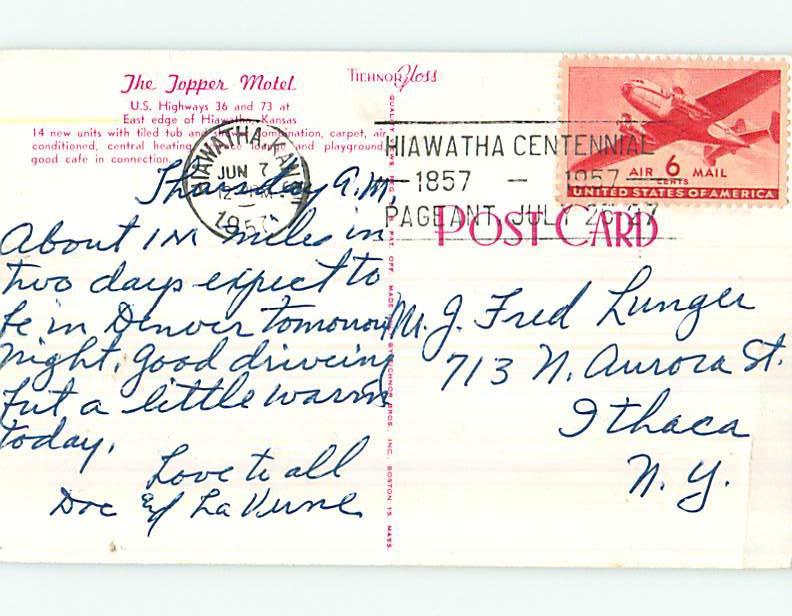 The Topper Motel
U.S. Highways 36 and 73 at
East edge of Hiawatha, Kansas
14 new units with tiled tub and shower combination, carpet, air
conditioned, central heating, lounge and playground,
good cafe in connection.
TICHNOR Gloss
HIAWATHA, KAN.
JUN 7
12 PM
1957
HIAWATHA CENTENNIAL
1857 — 1957
PAGEANT JULY 27
AIR 6 MAIL
CENTS
UNITED STATES OF AMERICA
POST CARD
Thursday A.M.
About 1M miles in
two days expect to
be in Denver tomorrow
night. Good driveing
but a little warm
today.
Love to all
Doc and LaVerne
M. J. Fred Lunger
713 N. Aurora St.
Ithaca
N. Y.
BROS. INC. BOSTON 15, MASS.